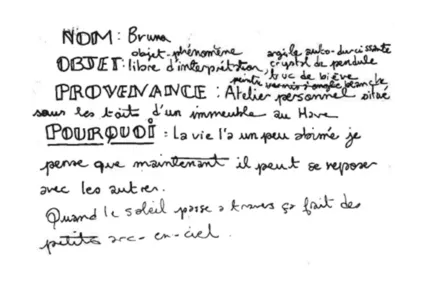 NOM : Bruna
objet-phénomène argile auto-durcissante
OBJET : libre d'interprétation, crystal de pendule
peinte, truc de bière
vernis à ongle blanche
PROVENANCE : Atelier personnel situé
sous les toits d'un immeuble au Havre
POURQUOI : La vie l'a un peu abimé je
pense que maintenant il peut se reposer
avec les autres.
Quand le soleil passe a travers ça fait des
petits arc-en-ciel.